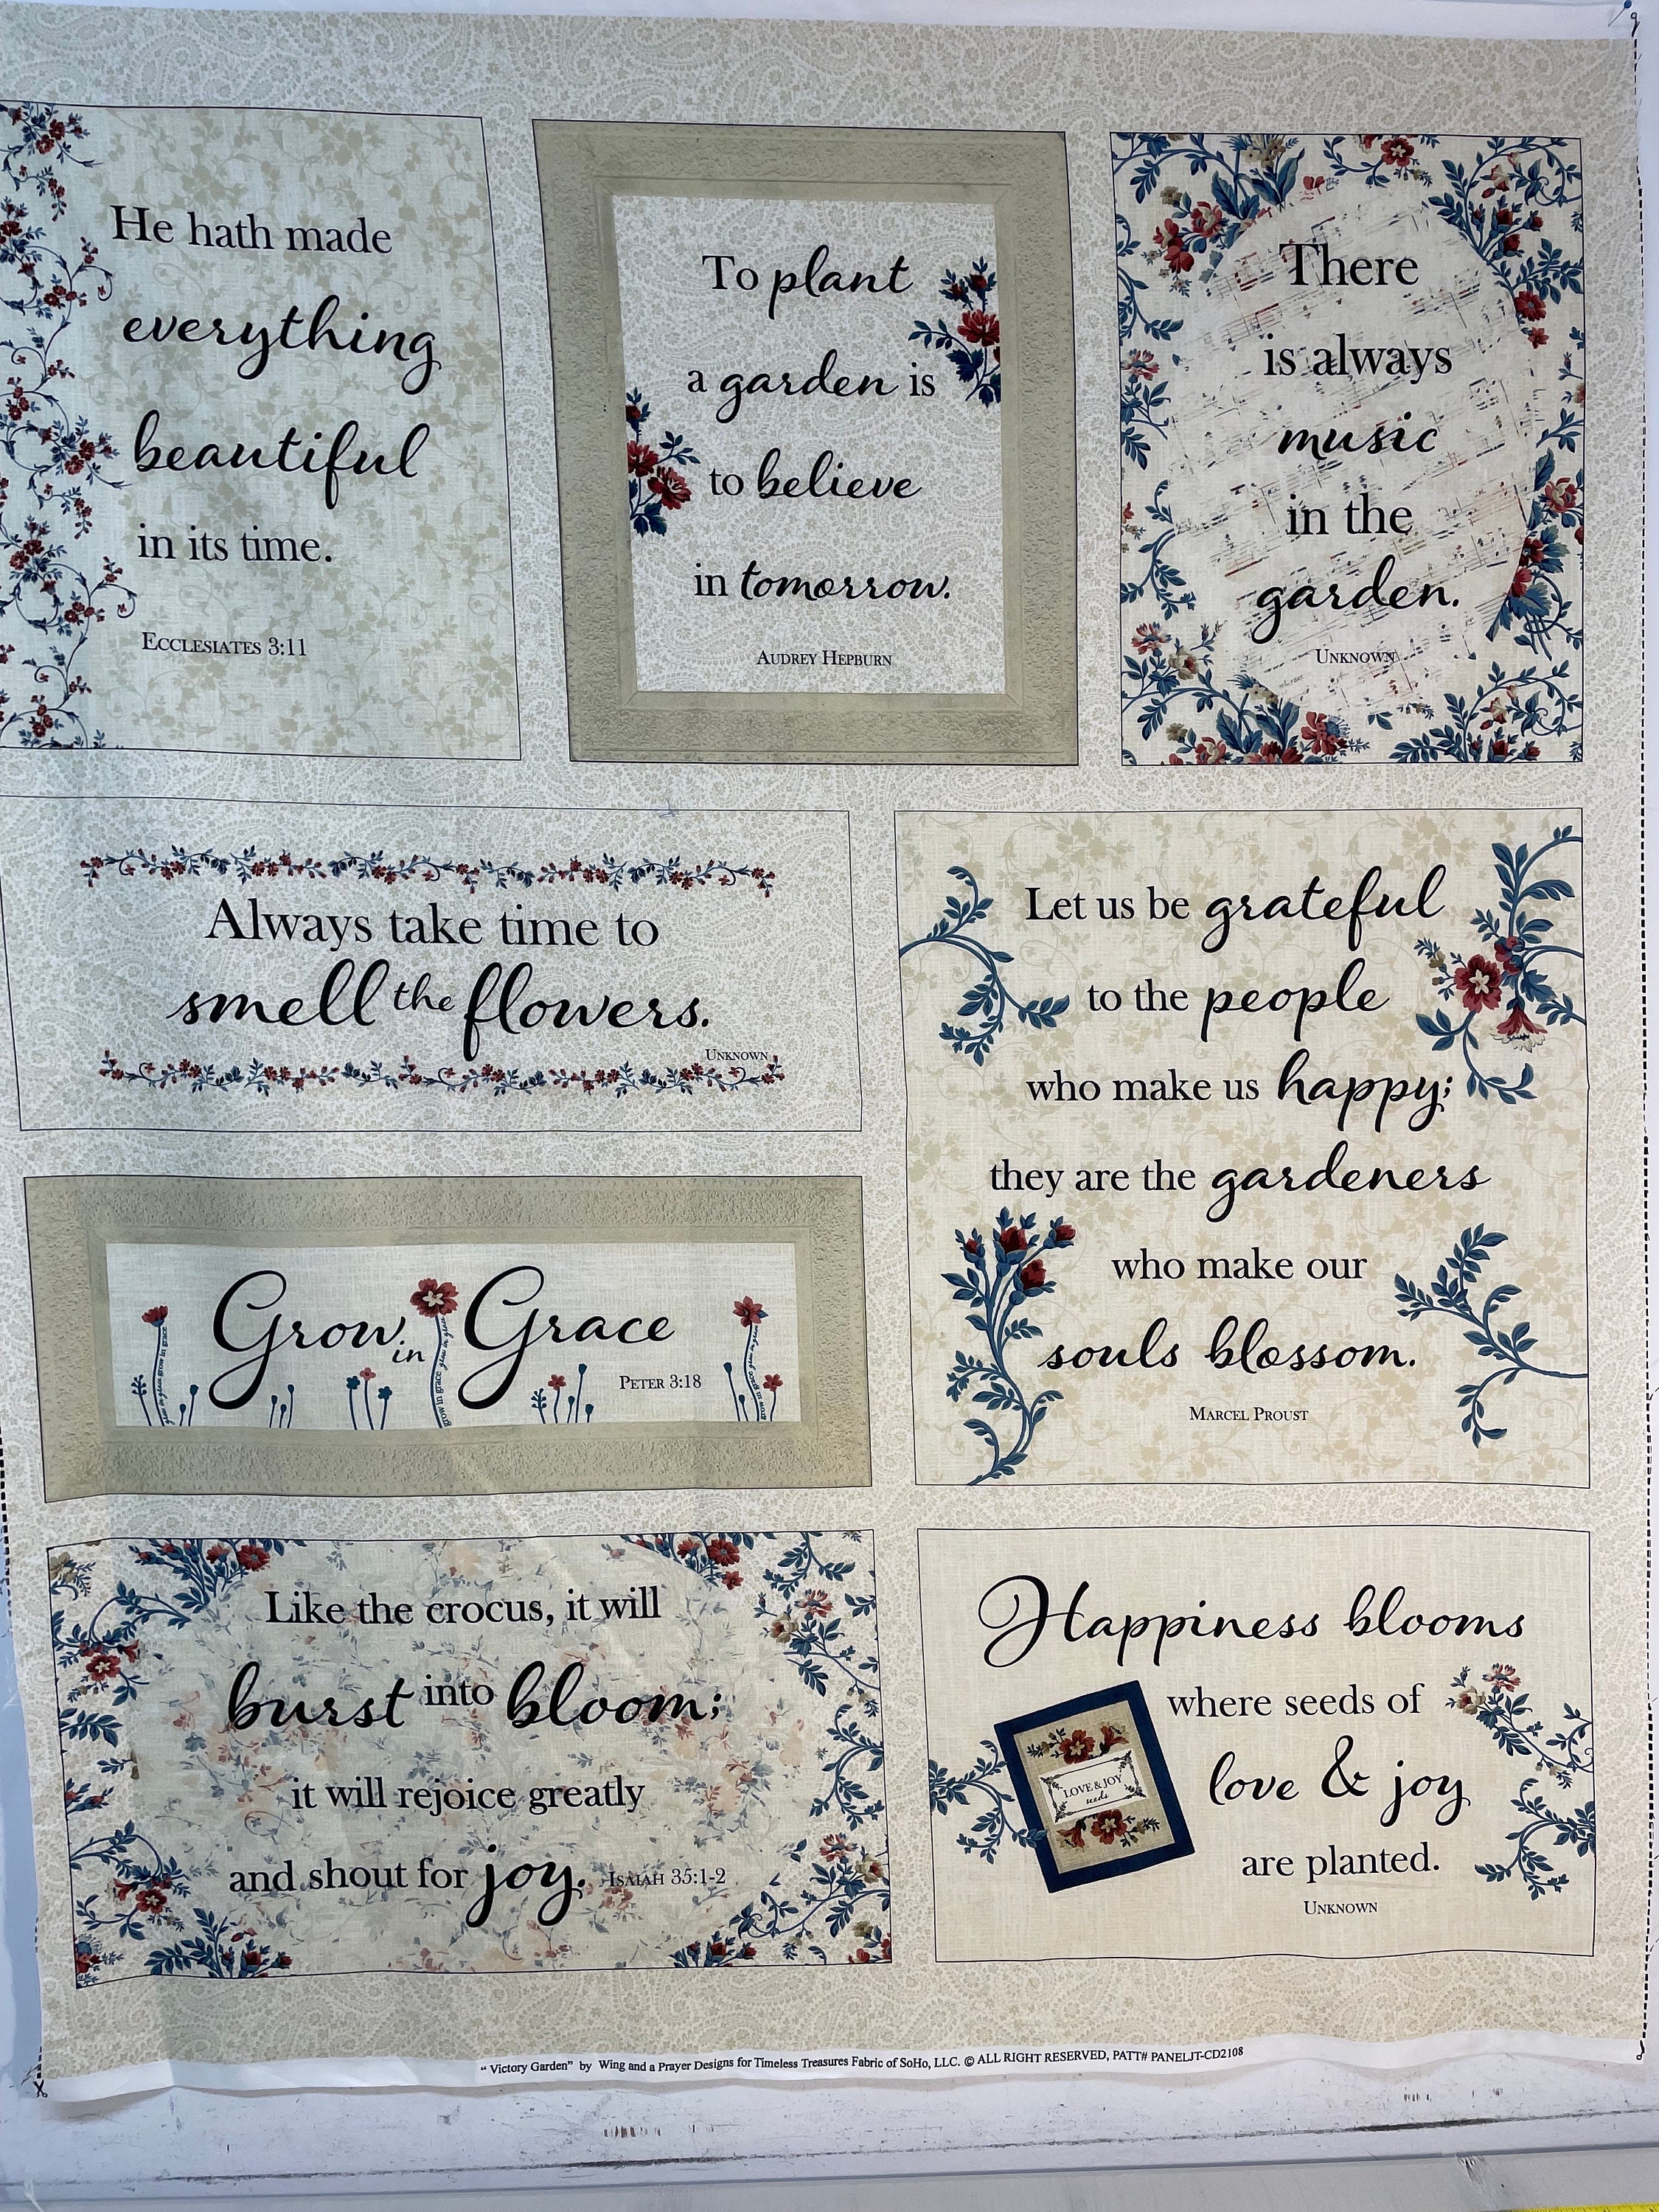 He hath made
everything
beautiful
in its time.
Ecclesiates 3:11
To plant
a garden is
to believe
in tomorrow.
Audrey Hepburn
There
is always
music
in the
garden.
Unknown
Always take time to
smell the flowers.
Unknown
Let us be grateful
to the people
who make us happy;
they are the gardeners
who make our
souls blossom.
Marcel Proust
Grow in Grace
Peter 3:18
grow in grace grow in grace
grow in grace grow in grace
grow in grace grow in grace
Like the crocus, it will
burst into bloom;
it will rejoice greatly
and shout for joy. Isaiah 35:1-2
Happiness blooms
where seeds of
love & joy
are planted.
Unknown
LOVE & JOY
seeds
“ Victory Garden” by Wing and a Prayer Designs for Timeless Treasures Fabric of SoHo, LLC. © ALL RIGHT RESERVED, PATT# PANELJT-CD2108